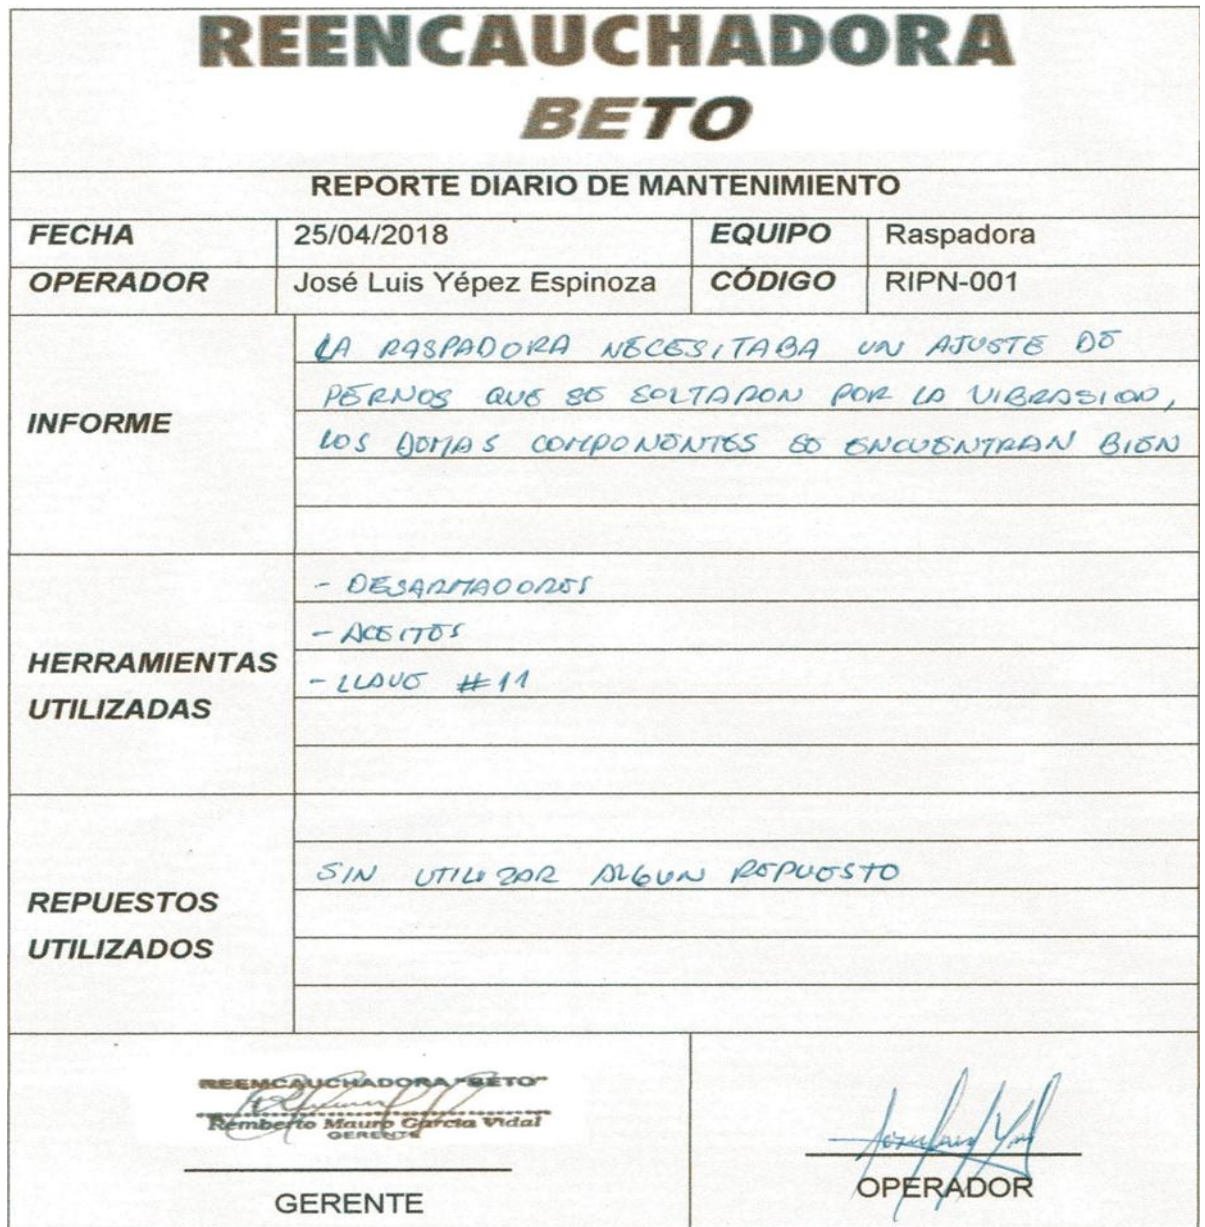 REENCAUCHADORA
BETO
REPORTE DIARIO DE MANTENIMIENTO
FECHA 25/04/2018 EQUIPO Raspadora
OPERADOR José Luis Yépez Espinoza CÓDIGO RIPN-001
INFORME
LA RASPADORA NECESITABA UN AJUSTE DE
PERNOS QUE SE SOLTARON POR LA VIBRASION,
LOS DEMAS COMPONENTES SE ENCUENTRAN BIEN
HERRAMIENTAS
UTILIZADAS
- DESARMADORES
- ACEITES
- LLAVE #11
REPUESTOS
UTILIZADOS
SIN UTILIZAR ALGUN REPUESTO
REEMCAUCHADORA "BETO"
Remberto Mauro Garcia Vidal
GERENTE
GERENTE
OPERADOR